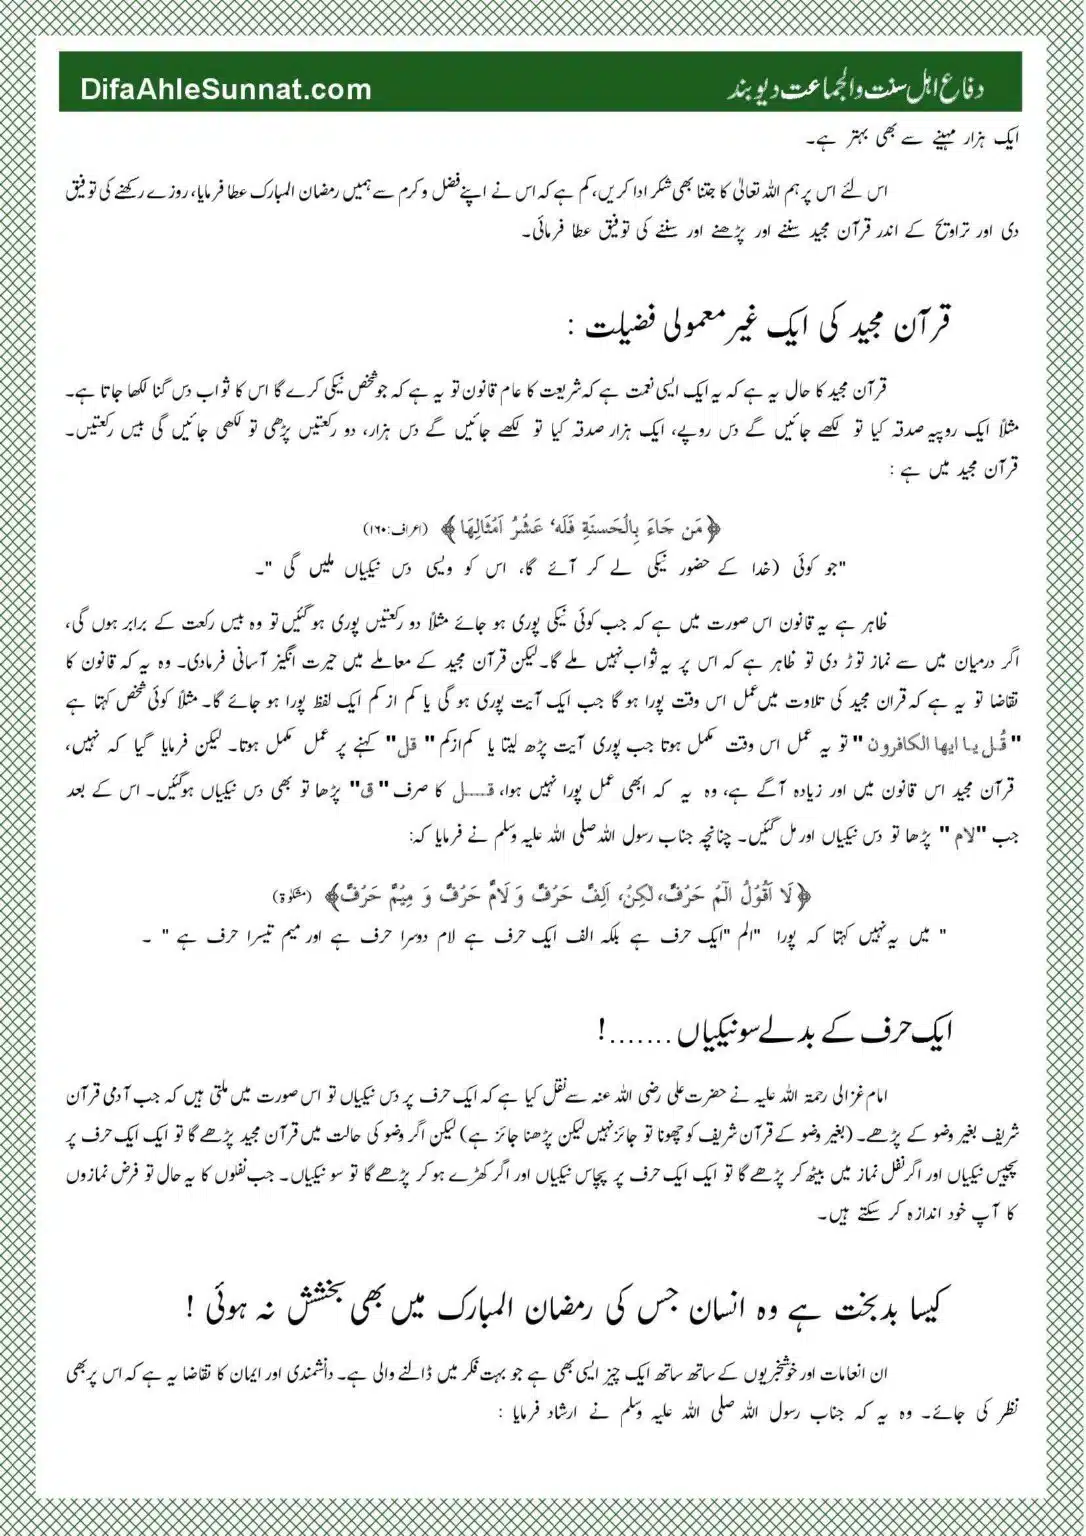 DifaAhleSunnat.com
دفاع اہل سنت والجماعت دیوبند
ایک ہزار مہینے سے بھی بہتر ہے۔
اس لئے اس پر ہم اللہ تعالیٰ کا جتنا بھی شکر ادا کریں، کم ہے کہ اس نے اپنے فضل و کرم سے ہمیں رمضان المبارک عطا فرمایا، روزے رکھنے کی توفیق
دی اور تراویح کے اندر قرآن مجید سننے اور پڑھنے اور سننے کی توفیق عطا فرمائی۔
قرآن مجید کی ایک غیر معمولی فضیلت :
قرآن مجید کا حال یہ ہے کہ یہ ایک ایسی نعمت ہے کہ شریعت کا عام قانون تو یہ ہے کہ جو شخص نیکی کرے گا اس کا ثواب دس گنا لکھا جاتا ہے۔
مثلاً ایک روپیہ صدقہ کیا تو لکھے جائیں گے دس روپے، ایک ہزار صدقہ کیا تو لکھے جائیں گے دس ہزار، دو رکعتیں پڑھی تو لکھی جائیں گی بیس رکعتیں۔
قرآن مجید میں ہے :
﴿مَن جَاءَ بِالْحَسنَةِ فَلَه‘ عَشْرُ اَمْثَالِهَا﴾ (اعراف:۱۶۰)
"جو کوئی (خدا کے حضور نیکی لے کر آئے گا، اس کو ویسی دس نیکیاں ملیں گی "۔
ظاہر ہے یہ قانون اس صورت میں ہے کہ جب کوئی نیکی پوری ہو جائے مثلاً دو رکعتیں پوری ہو گئیں تو وہ بیس رکعت کے برابر ہوں گی،
اگر درمیان میں سے نماز توڑ دی تو ظاہر ہے کہ اس پر یہ ثواب نہیں ملے گا۔ لیکن قرآن مجید کے معاملے میں حیرت انگیز آسانی فرمادی۔ وہ یہ کہ قانون کا
تقاضا تو یہ ہے کہ قران مجید کی تلاوت میں عمل اس وقت پورا ہو گا جب ایک آیت پوری ہو گی یا کم از کم ایک لفظ پورا ہو جائے گا۔ مثلاً کوئی شخص کہتا ہے
" قُل یا ایها الکافرون " تو یہ عمل اس وقت مکمل ہوتا جب پوری آیت پڑھ لیتا یا کم ازکم " قل" کہنے پر عمل مکمل ہوتا۔ لیکن فرمایا گیا کہ نہیں،
قرآن مجید اس قانون میں اور زیادہ آگے ہے، وہ یہ کہ ابھی عمل پورا نہیں ہوا، قــل کا صرف " ق" پڑھا تو بھی دس نیکیاں ہوگئیں۔ اس کے بعد
جب "لام " پڑھا تو دس نیکیاں اور مل گئیں۔ چنانچہ جناب رسول اللہ صلی اللہ علیہ وسلم نے فرمایا کہ:
﴿لَا اَقُوْلُ الٓمٓ حَرْفٌ، لٰكِنْ، اَلِفٌ حَرْفٌ وَ لَامٌ حَرْفٌ وَ مِيْمٌ حَرْفٌ﴾ (مشکوٰۃ)
" میں یہ نہیں کہتا کہ پورا "الم "ایک حرف ہے بلکہ الف ایک حرف ہے لام دوسرا حرف ہے اور میم تیسرا حرف ہے " ۔
ایک حرف کے بدلے سو نیکیاں .......!
امام غزالی رحمۃ اللہ علیہ نے حضرت علی رضی اللہ عنہ سے نقل کیا ہے کہ ایک حرف پر دس نیکیاں تو اس صورت میں ملتی ہیں کہ جب آدمی قرآن
شریف بغیر وضو کے پڑھے۔ (بغیر وضو کے قرآن شریف کو چھونا تو جائز نہیں لیکن پڑھنا جائز ہے) لیکن اگر وضو کی حالت میں قرآن مجید پڑھے گا تو ایک ایک حرف پر
پچیس نیکیاں اور اگر نفل نماز میں بیٹھ کر پڑھے گا تو ایک ایک حرف پر پچاس نیکیاں اور اگر کھڑے ہو کر پڑھے گا تو سو نیکیاں۔ جب نفلوں کا یہ حال تو فرض نمازوں
کا آپ خود اندازہ کر سکتے ہیں۔
کیسا بدبخت ہے وہ انسان جس کی رمضان المبارک میں بھی بخشش نہ ہوئی !
ان انعامات اور خوشخبریوں کے ساتھ ساتھ ایک چیز ایسی بھی ہے جو بہت فکر میں ڈالنے والی ہے۔ دانشمندی اور ایمان کا تقاضا یہ ہے کہ اس پر بھی
نظر کی جائے۔ وہ یہ کہ جناب رسول اللہ صلی اللہ علیہ وسلم نے ارشاد فرمایا :